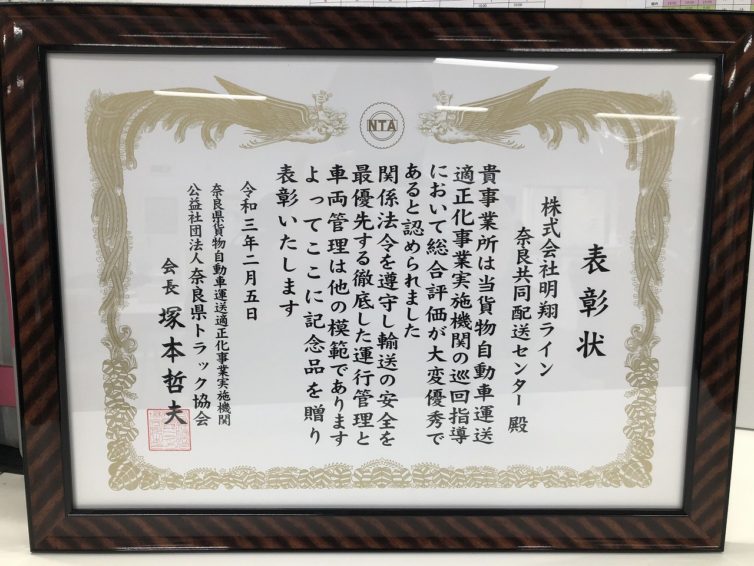 NTA
表彰状
株式会社明翔ライン
奈良共同配送センター 殿
貴事業所は当貨物自動車運送
適正化事業実施機関の巡回指導
において総合評価が大変優秀で
あると認められました
関係法令を遵守し輸送の安全を
最優先する徹底した運行管理と
車両管理は他の模範であります
よってここに記念品を贈り
表彰いたします
令和三年二月五日
奈良県貨物自動車運送適正化事業実施機関
公益社団法人奈良県トラック協会
会長 塚本哲夫